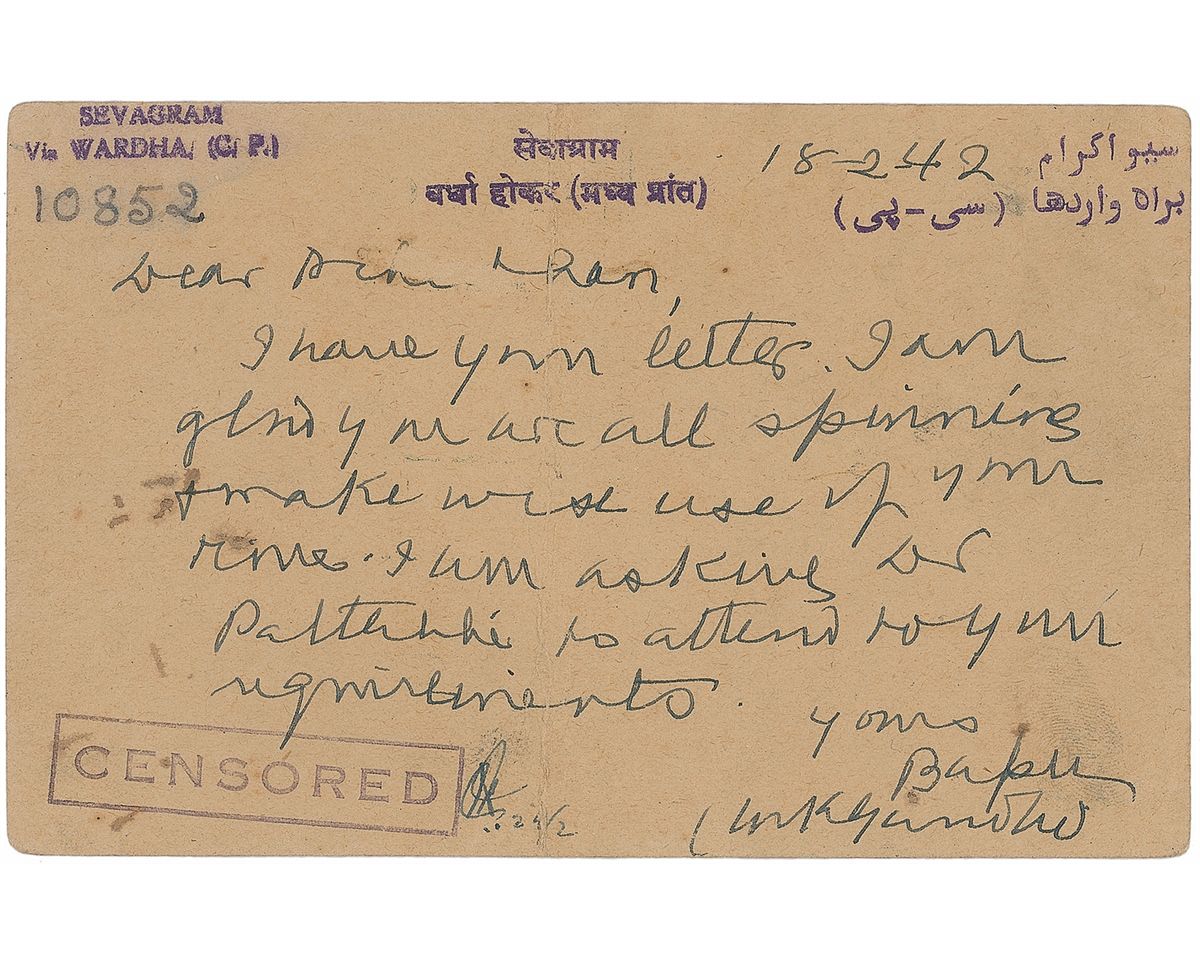 SEVAGRAM
Via WARDHA, (C. P.)
सेवाग्राम
वर्धा होकर (मध्य प्रांत)
18-2-42
سیو اگرام
براہ واردھا (سی-پی)
10852
Dear Khan,
I have your letter. I am
glad you are all spinning
+ make wise use of your
time. I am asking Dr
Pattabhi to attend to your
requirements.
yours
Bapu
(MKGandhi
CENSORED
24/2